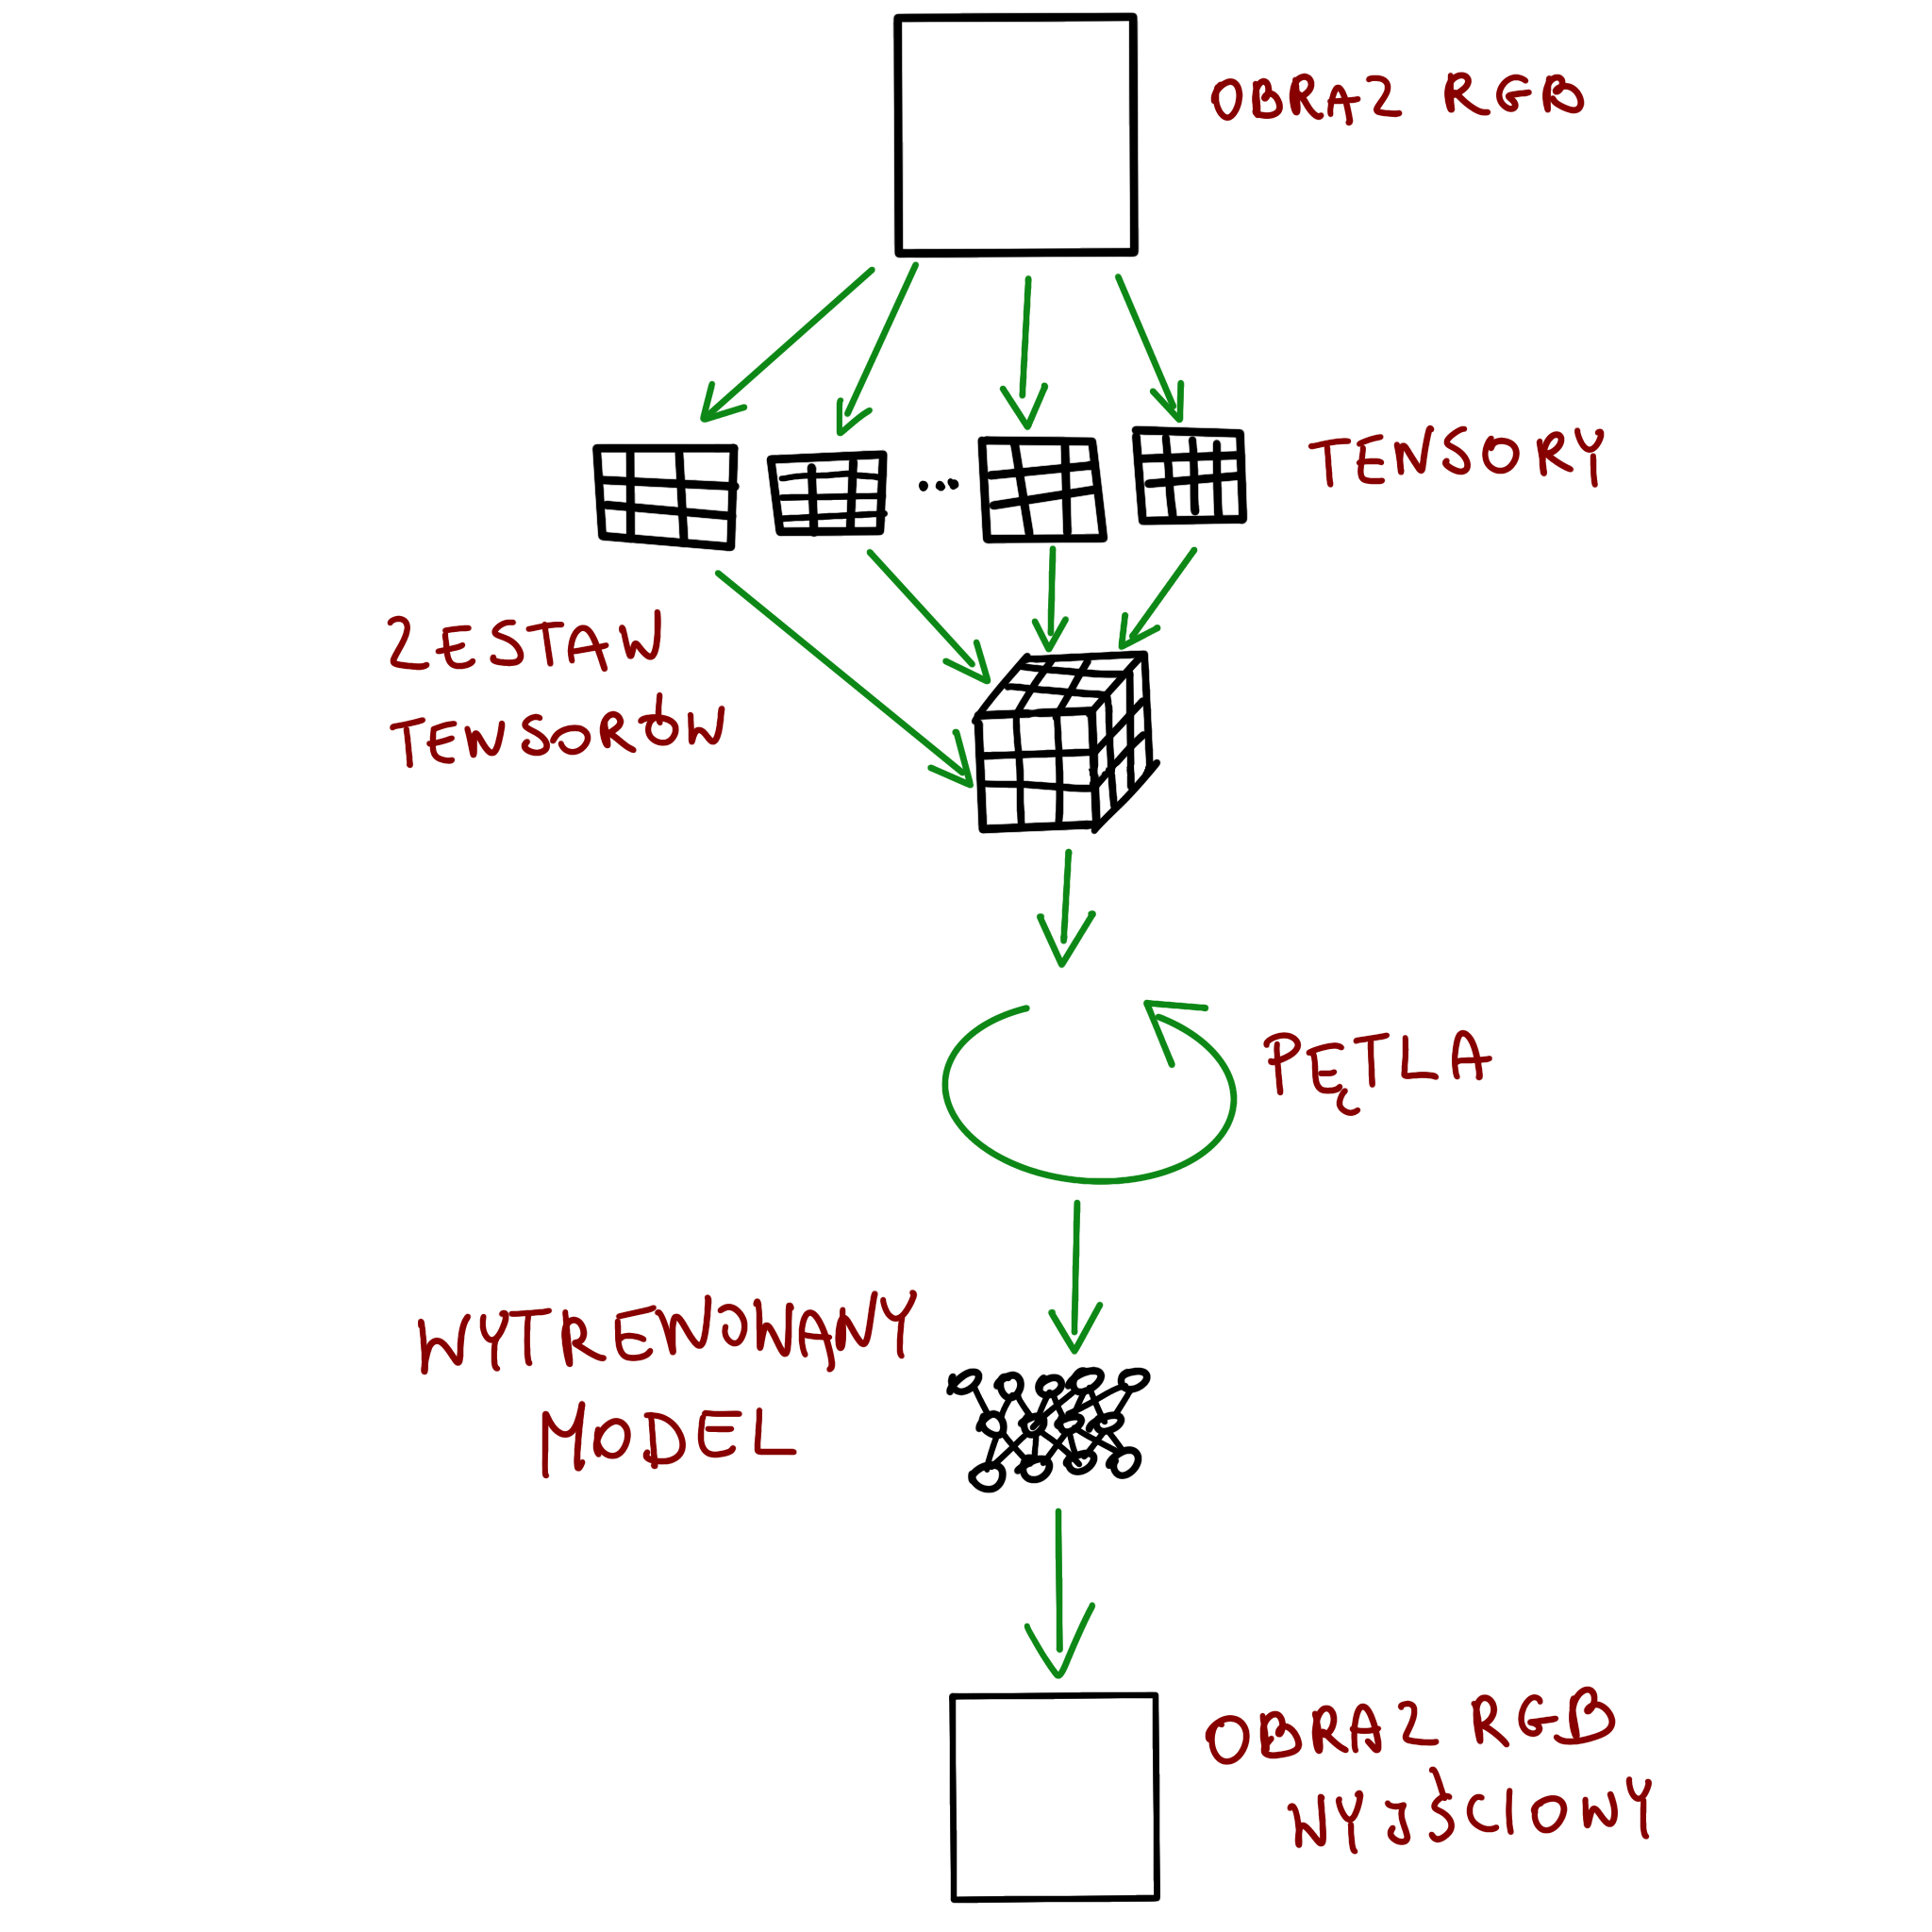 OBRAZ RGB
TENSORY
ZESTAW
TENSORÓW
PĘTLA
WYTRENOWANY
MODEL
OBRAZ RGB
WYJŚCIOWY